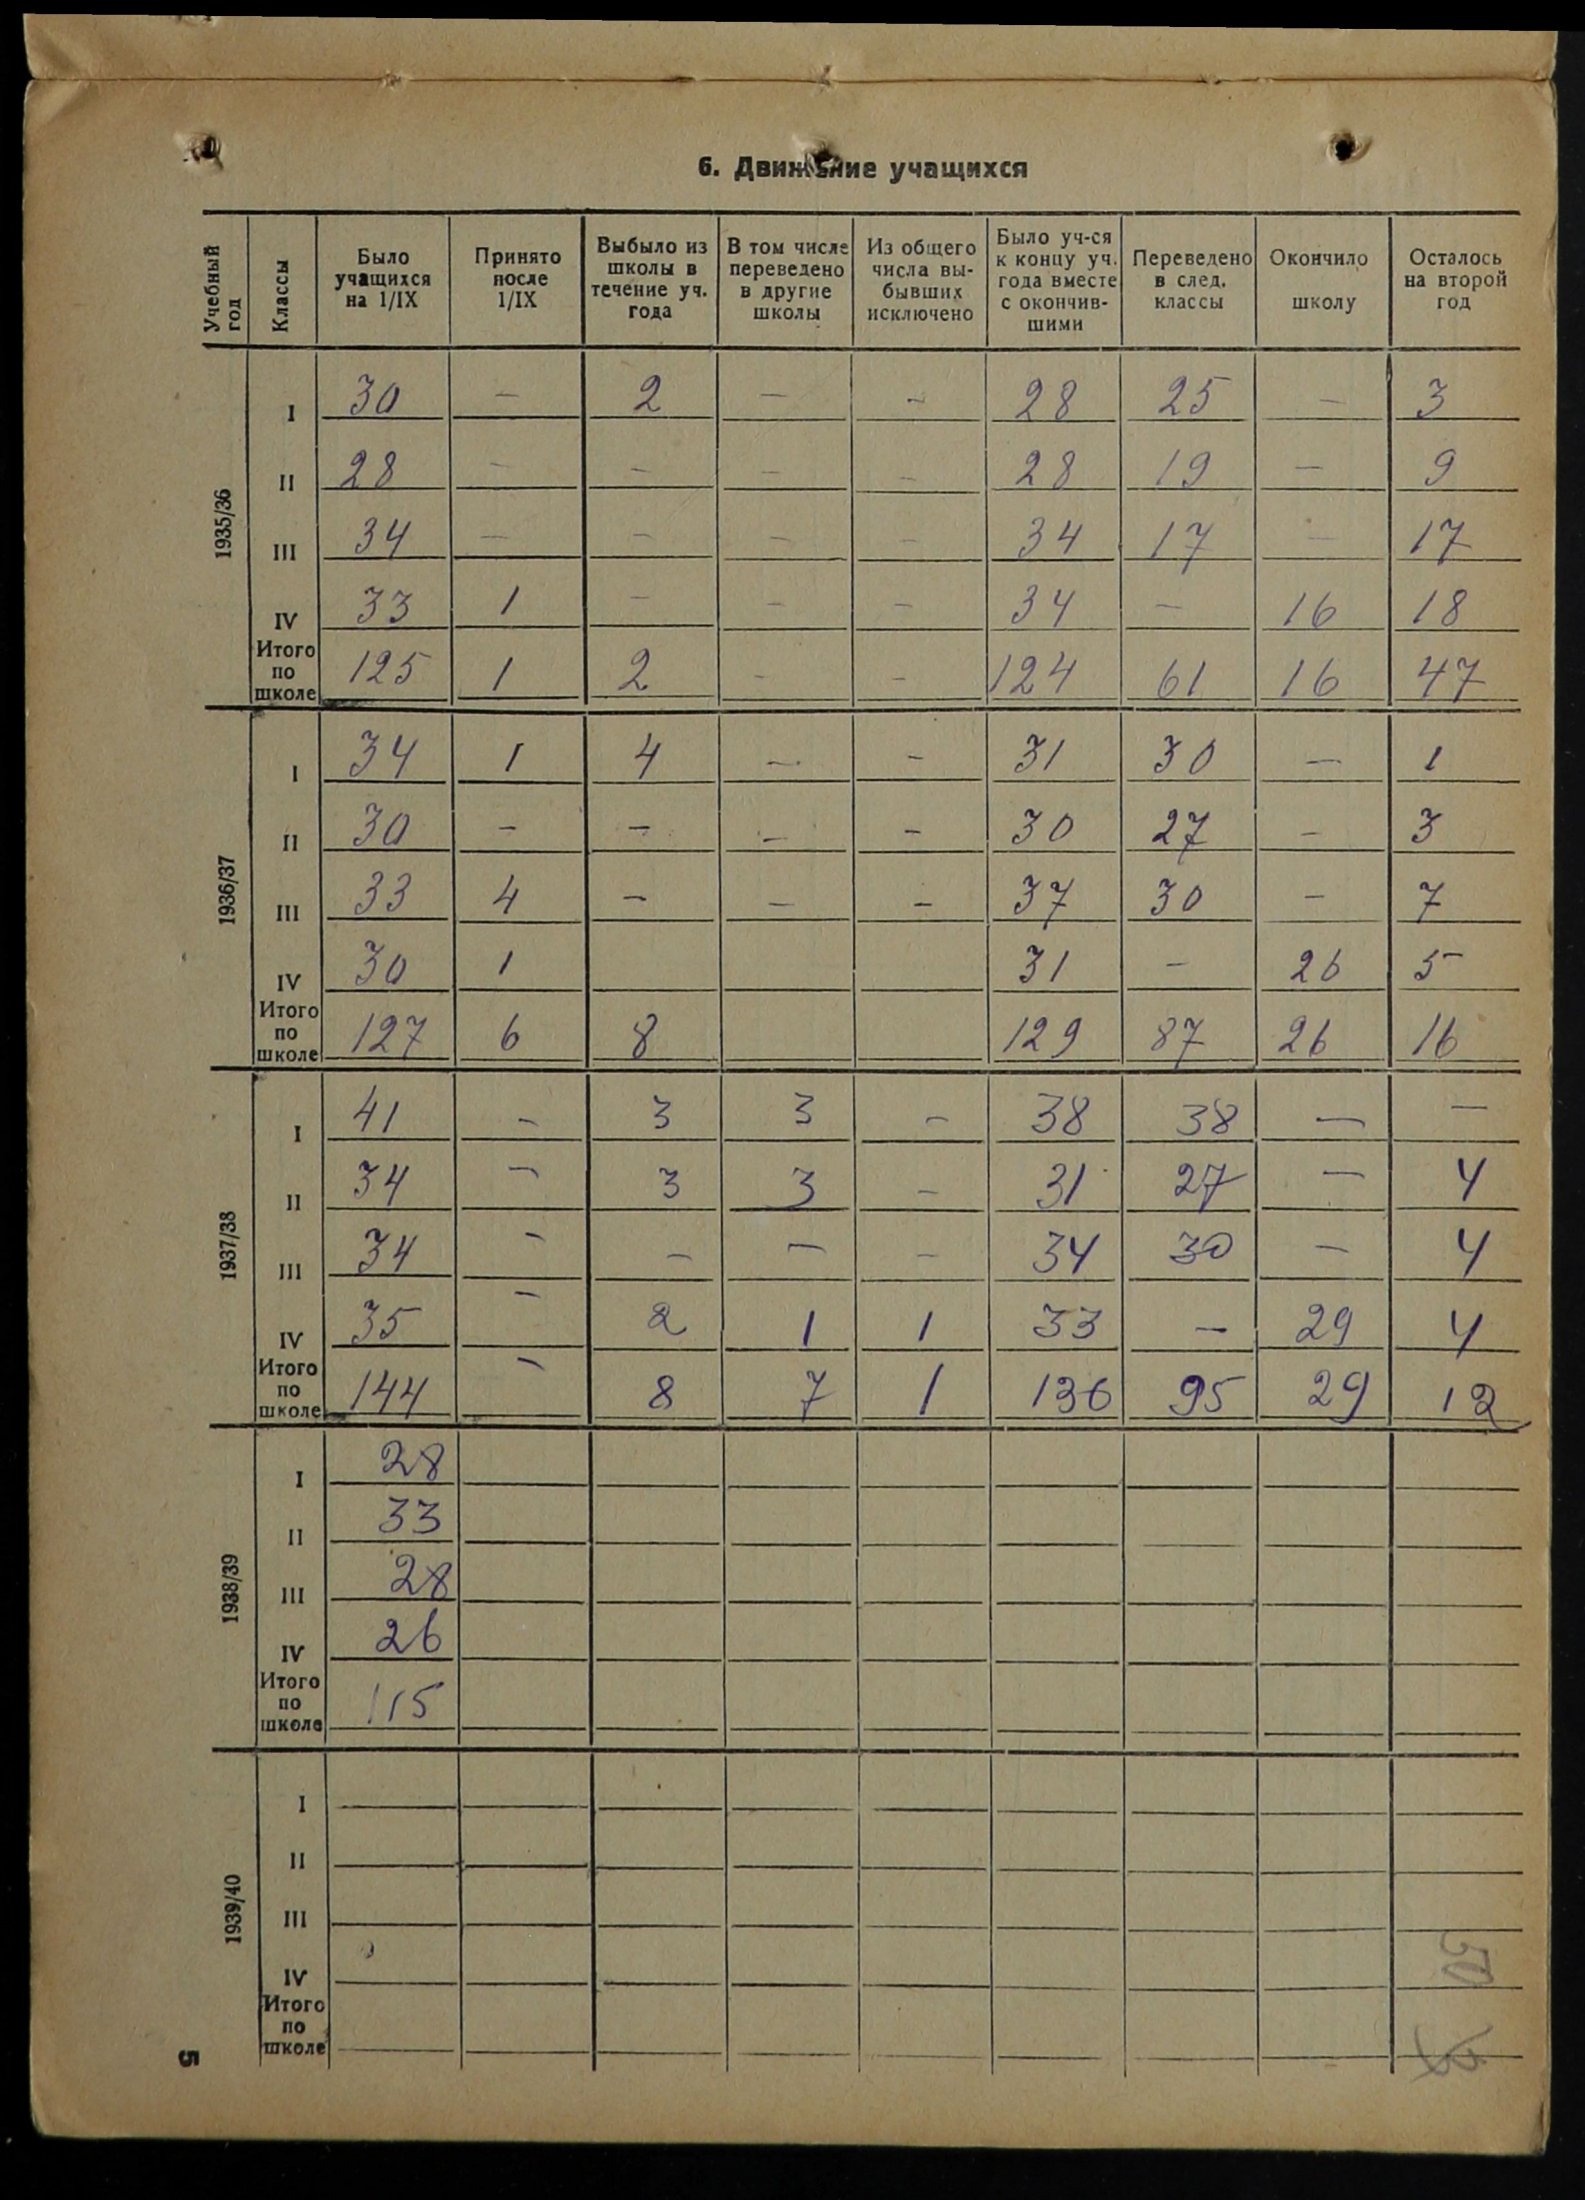 6. Движение учащихся
Учебный год | Классы | Было учащихся на 1/IX | Принято после 1/IX | Выбыло из школы в течение уч. года | В том числе переведено в другие школы | Из общего числа выбывших исключено | Было уч-ся к концу уч. года вместе с окончившими | Переведено в след. классы | Окончило школу | Осталось на второй год
1935/36
I 30 – 2 – – 28 25 – 3
II 28 – – – – 28 19 – 9
III 34 – – – – 34 17 – 17
IV 33 1 – – – 34 – 16 18
Итого по школе 125 1 2 – – 124 61 16 47
1936/37
I 34 1 4 – – 31 30 – 1
II 30 – – – – 30 27 – 3
III 33 4 – – – 37 30 – 7
IV 30 1 31 – 26 5
Итого по школе 127 6 8 129 87 26 16
1937/38
I 41 – 3 3 – 38 38 – –
II 34 – 3 3 – 31 27 – 4
III 34 – – – – 34 30 – 4
IV 35 – 2 1 1 33 – 29 4
Итого по школе 144 – 8 7 1 136 95 29 12
1938/39
I 28
II 33
III 28
IV 26
Итого по школе 115
1939/40
I
II
III
IV
Итого по школе
50
5